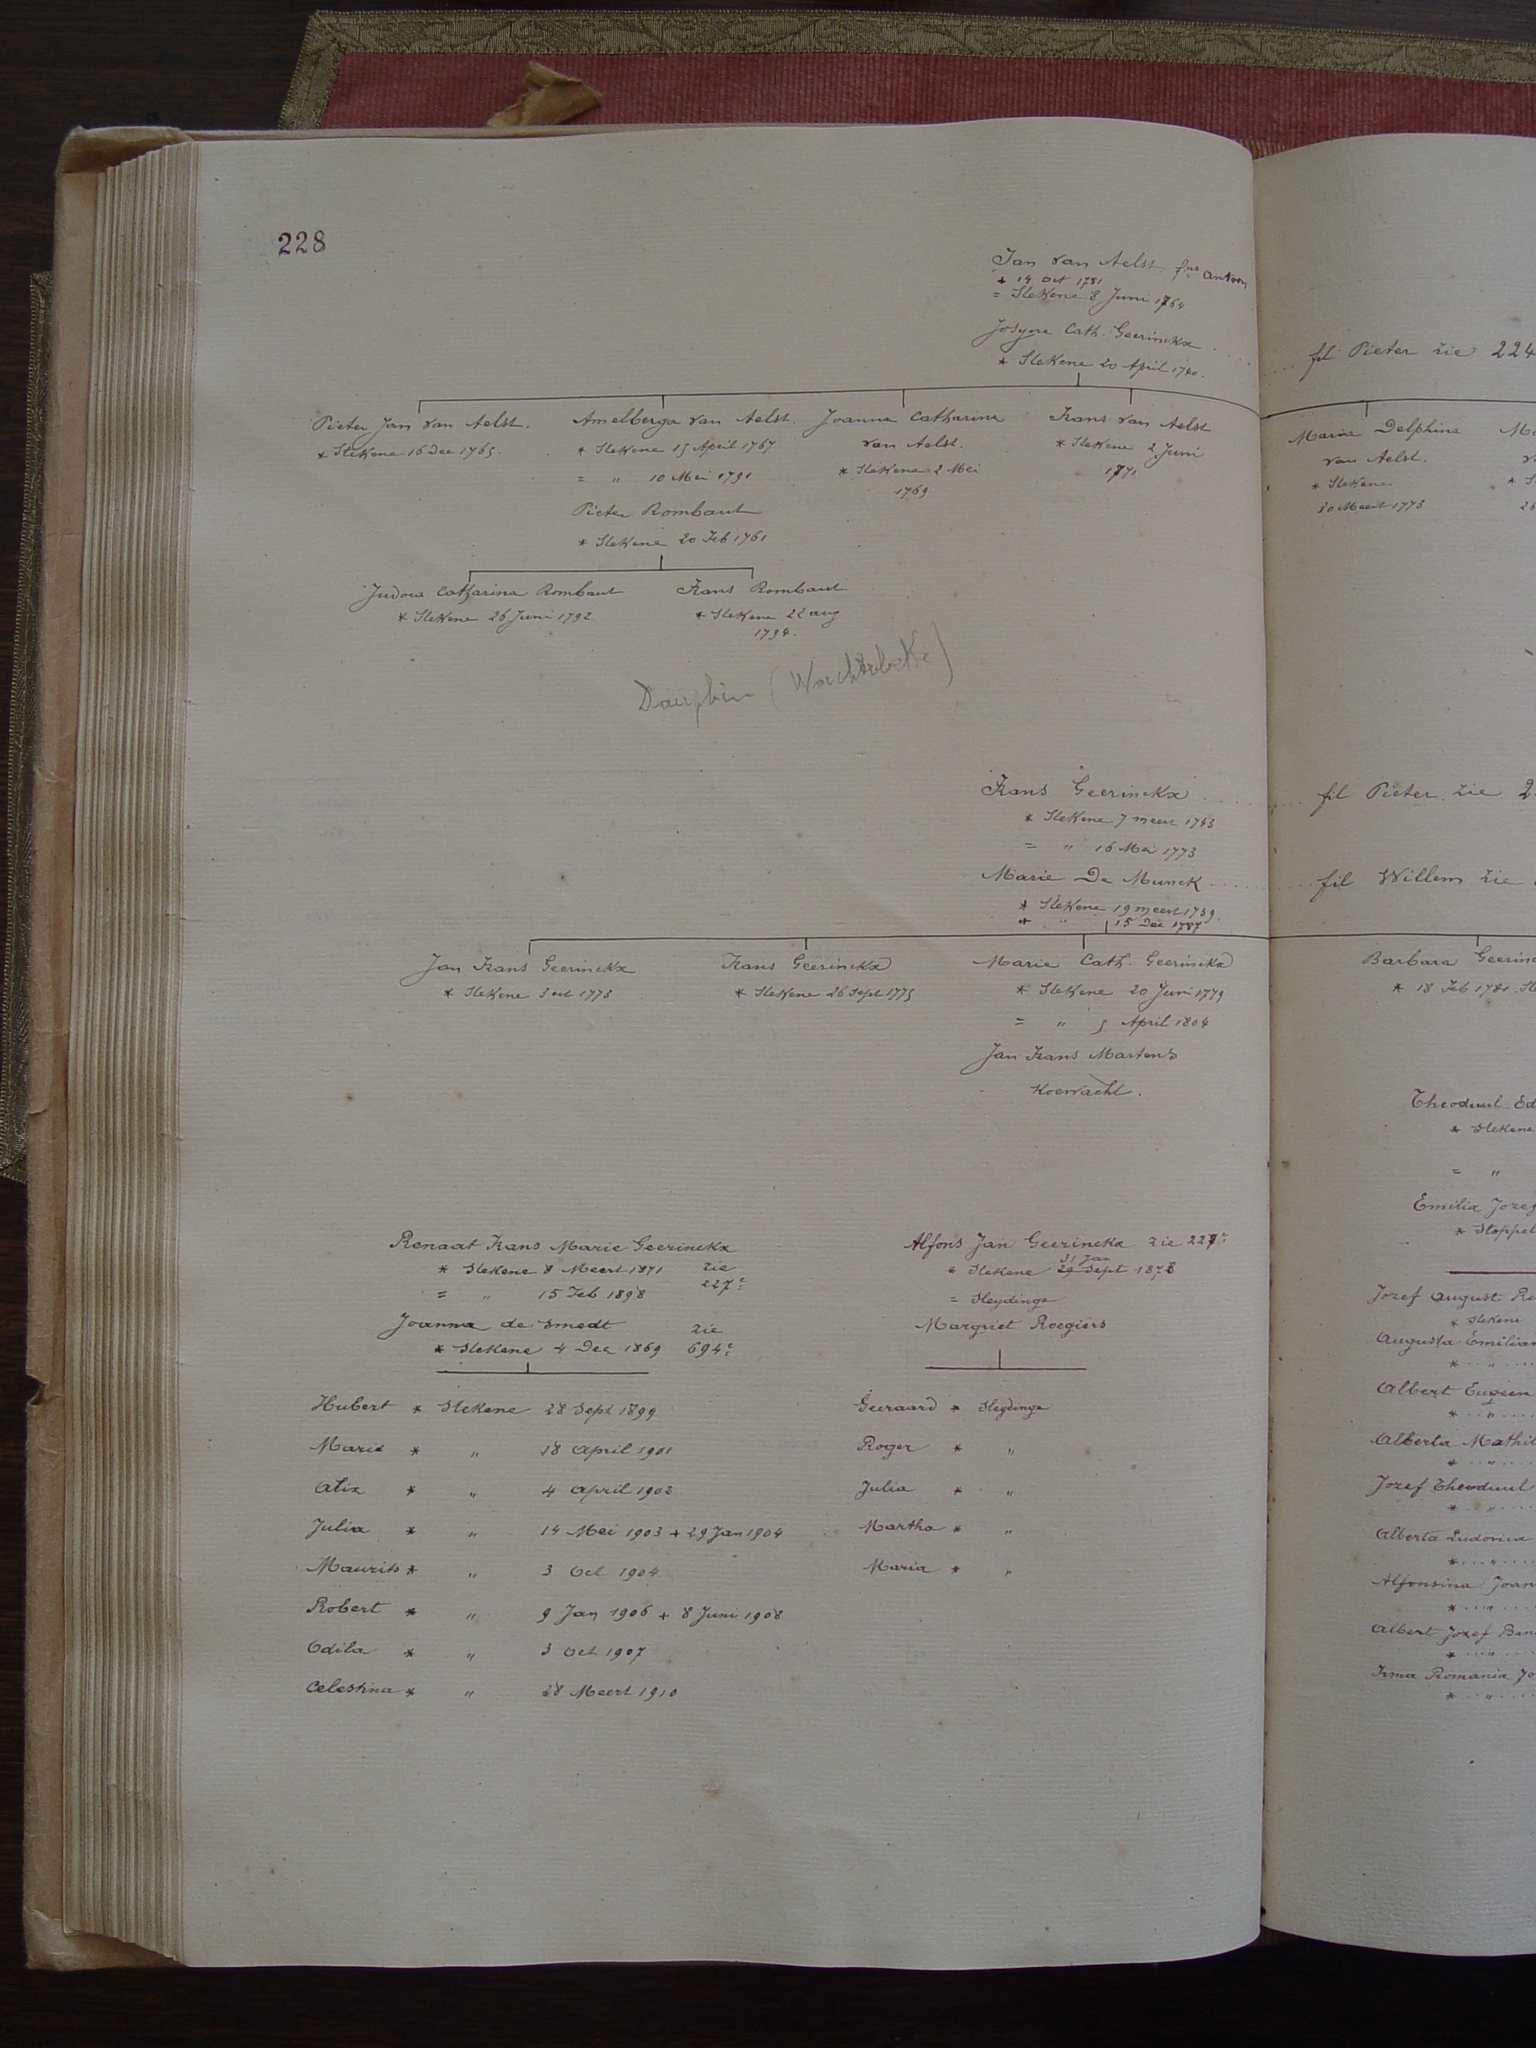 228
Jan van Aelst. fus Antoon
+ 14 Oct 1781
= Stekene 8 Juni 1764
Josyne Cath. Geerinckx
* Stekene 20 April 1740.
fil Pieter zie 224
Pieter Jan van Aelst.
* Stekene 16 Dec 1765.
Amelberga van Aelst.
* Stekene 15 April 1767
= " 10 Mei 1791
Pieter Rombaut
* Stekene 20 Feb 1761
Joanna Catharina
van Aelst.
* Stekene 2 Mei
1769
Frans van Aelst
* Stekene 2 Juni
1771
Maria Delphina
van Aelst.
* Stekene.
30 Meert 1773
Judoca Catharina Rombaut
* Stekene 26 Juni 1792
Frans Rombaut
* Stekene 22 aug
1794.
Dauphin (Wachtebeke)
Frans Geerinckx
* Stekene 7 meert 1743
= " 16 Mei 1773
Marie De Munck
* Stekene 19 meert 1739.
+ " 15 Dec 1787
fil Pieter. zie
fil Willem zie
Jan Frans Geerinckx
* Stekene 3 oct 1773
Frans Geerinckx
* Stekene 26 Sept 1775
Marie Cath. Geerinckx
* Stekene 20 Juni 1779
= " 5 April 1804
Jan Frans Martens
Koewacht.
Barbara
* 18 Feb 1781
Renaat Frans Marie Geerinckx
* Stekene 8 Meert 1871 zie
= " 15 Feb 1898 227c
Joanna de Smedt zie
* Stekene 4 Dec 1869 694c
Hubert * Stekene 28 Sept 1899
Marie * " 18 April 1901
Alix * " 4 April 1902
Julia * " 14 Mei 1903 + 29 Jan 1904
Maurits * " 3 Oct 1904
Robert * " 9 Jan 1906 + 8 Juni 1908
Odila * " 3 Oct 1907
Celestina * " 28 Meert 1910
Alfons Jan Geerinckx zie 227c
31 Jan
* Stekene 29 Sept 1878
= Sleydinge
Margriet Roegiers
Geeraard * Sleydinge
Roger * "
Julia * "
Martha * "
Maria * "
Theoduul
* Stekene
= "
Emilia
*
Jozef August
* Stekene
Augusta
* "
Albert Eugeen
* "
Alberta
* "
Jozef Theoduul
* "
Alberta Ludovica
* "
Alfonsina
* "
Albert Jozef
* "
Irma Romania
* "